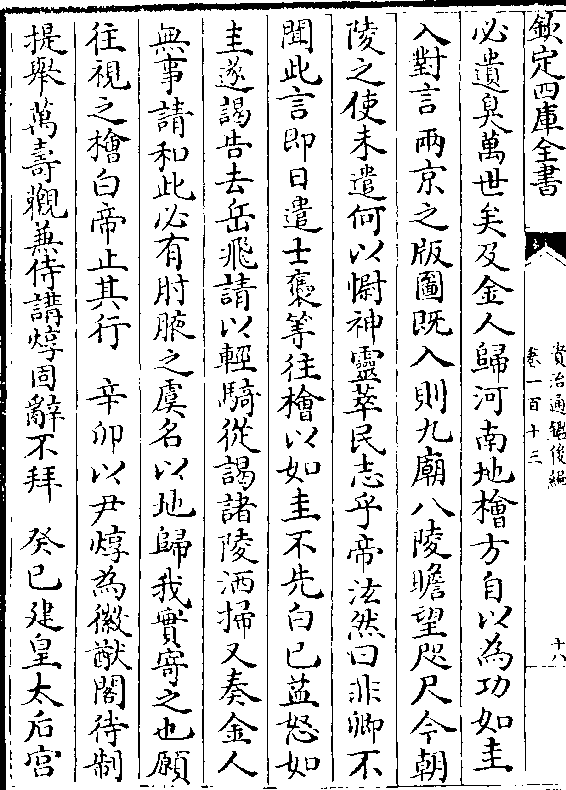 欽定四庫全書
資治通鑑後編
卷一百十三
十八
必遺臭萬世矣及金人歸河南地檜方自以為功如圭
入對言兩京之版圖既入則九廟八陵瞻望咫尺今朝
陵之使未遣何以慰神靈萃民志乎帝泫然曰非卿不
聞此言即日遣士㒟等往檜以如圭不先白已益怒如
圭遂謁告去岳飛請以輕騎從謁諸陵洒掃又奏金人
無事請和此必有肘腋之虞名以地歸我實寄之也願
往視之檜白帝止其行　辛卯以尹焞為徽猷閣待制
提舉萬壽觀兼侍講焞固辭不拜　癸巳建皇太后宫